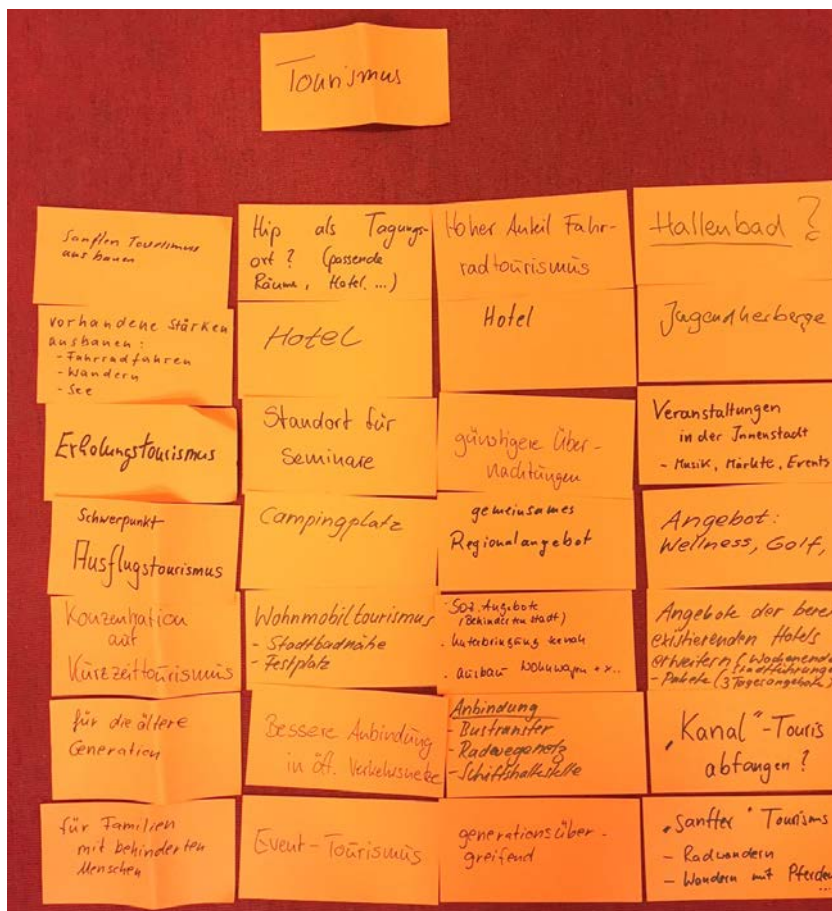 Tourismus
Sanften Tourismus
ausbauen
vorhandene Stärken
ausbauen:
- Fahrradfahren
- Wandern
- See
Erholungstourismus
Schwerpunkt
Ausflugstourismus
Konzentration
auf
Kurzzeittourismus
für die ältere
Generation
für Familien
mit behinderten
Menschen
Hip als Tagungs-
ort? (passende
Räume, Hotel...)
Hotel
Standort für
Seminare
Campingplatz
Wohnmobiltourismus
- Stadtbadnähe
- Festplatz
Bessere Anbindung
in öff. Verkehrsnetze
Event-Tourismus
Hoher Anteil Fahr-
radtourismus
Hotel
günstigere Über-
nachtungen
gemeinsames
Regionalangebot
- Soz. Angebote
(Behindertenstadt)
- Unterbringung
- Ausbau Wohnwagen + x..
Anbindung
- Bustransfer
- Radwegenetz
- Schiffshaltestelle
generationsüber-
greifend
Hallenbad?
Jugendherberge
Veranstaltungen
in der Innenstadt
- Musik, Märkte, Events
Angebot:
Wellness, Golf,
Angebote der berei
existierenden Hotels
erweitern (Wochenend
Stadtführunge
- Pakete (3 Tagesangebote)
"Kanal"-Touris
abfangen?
"Sanfter" Tourisms
- Radwandern
- Wandern mit Pferden
...